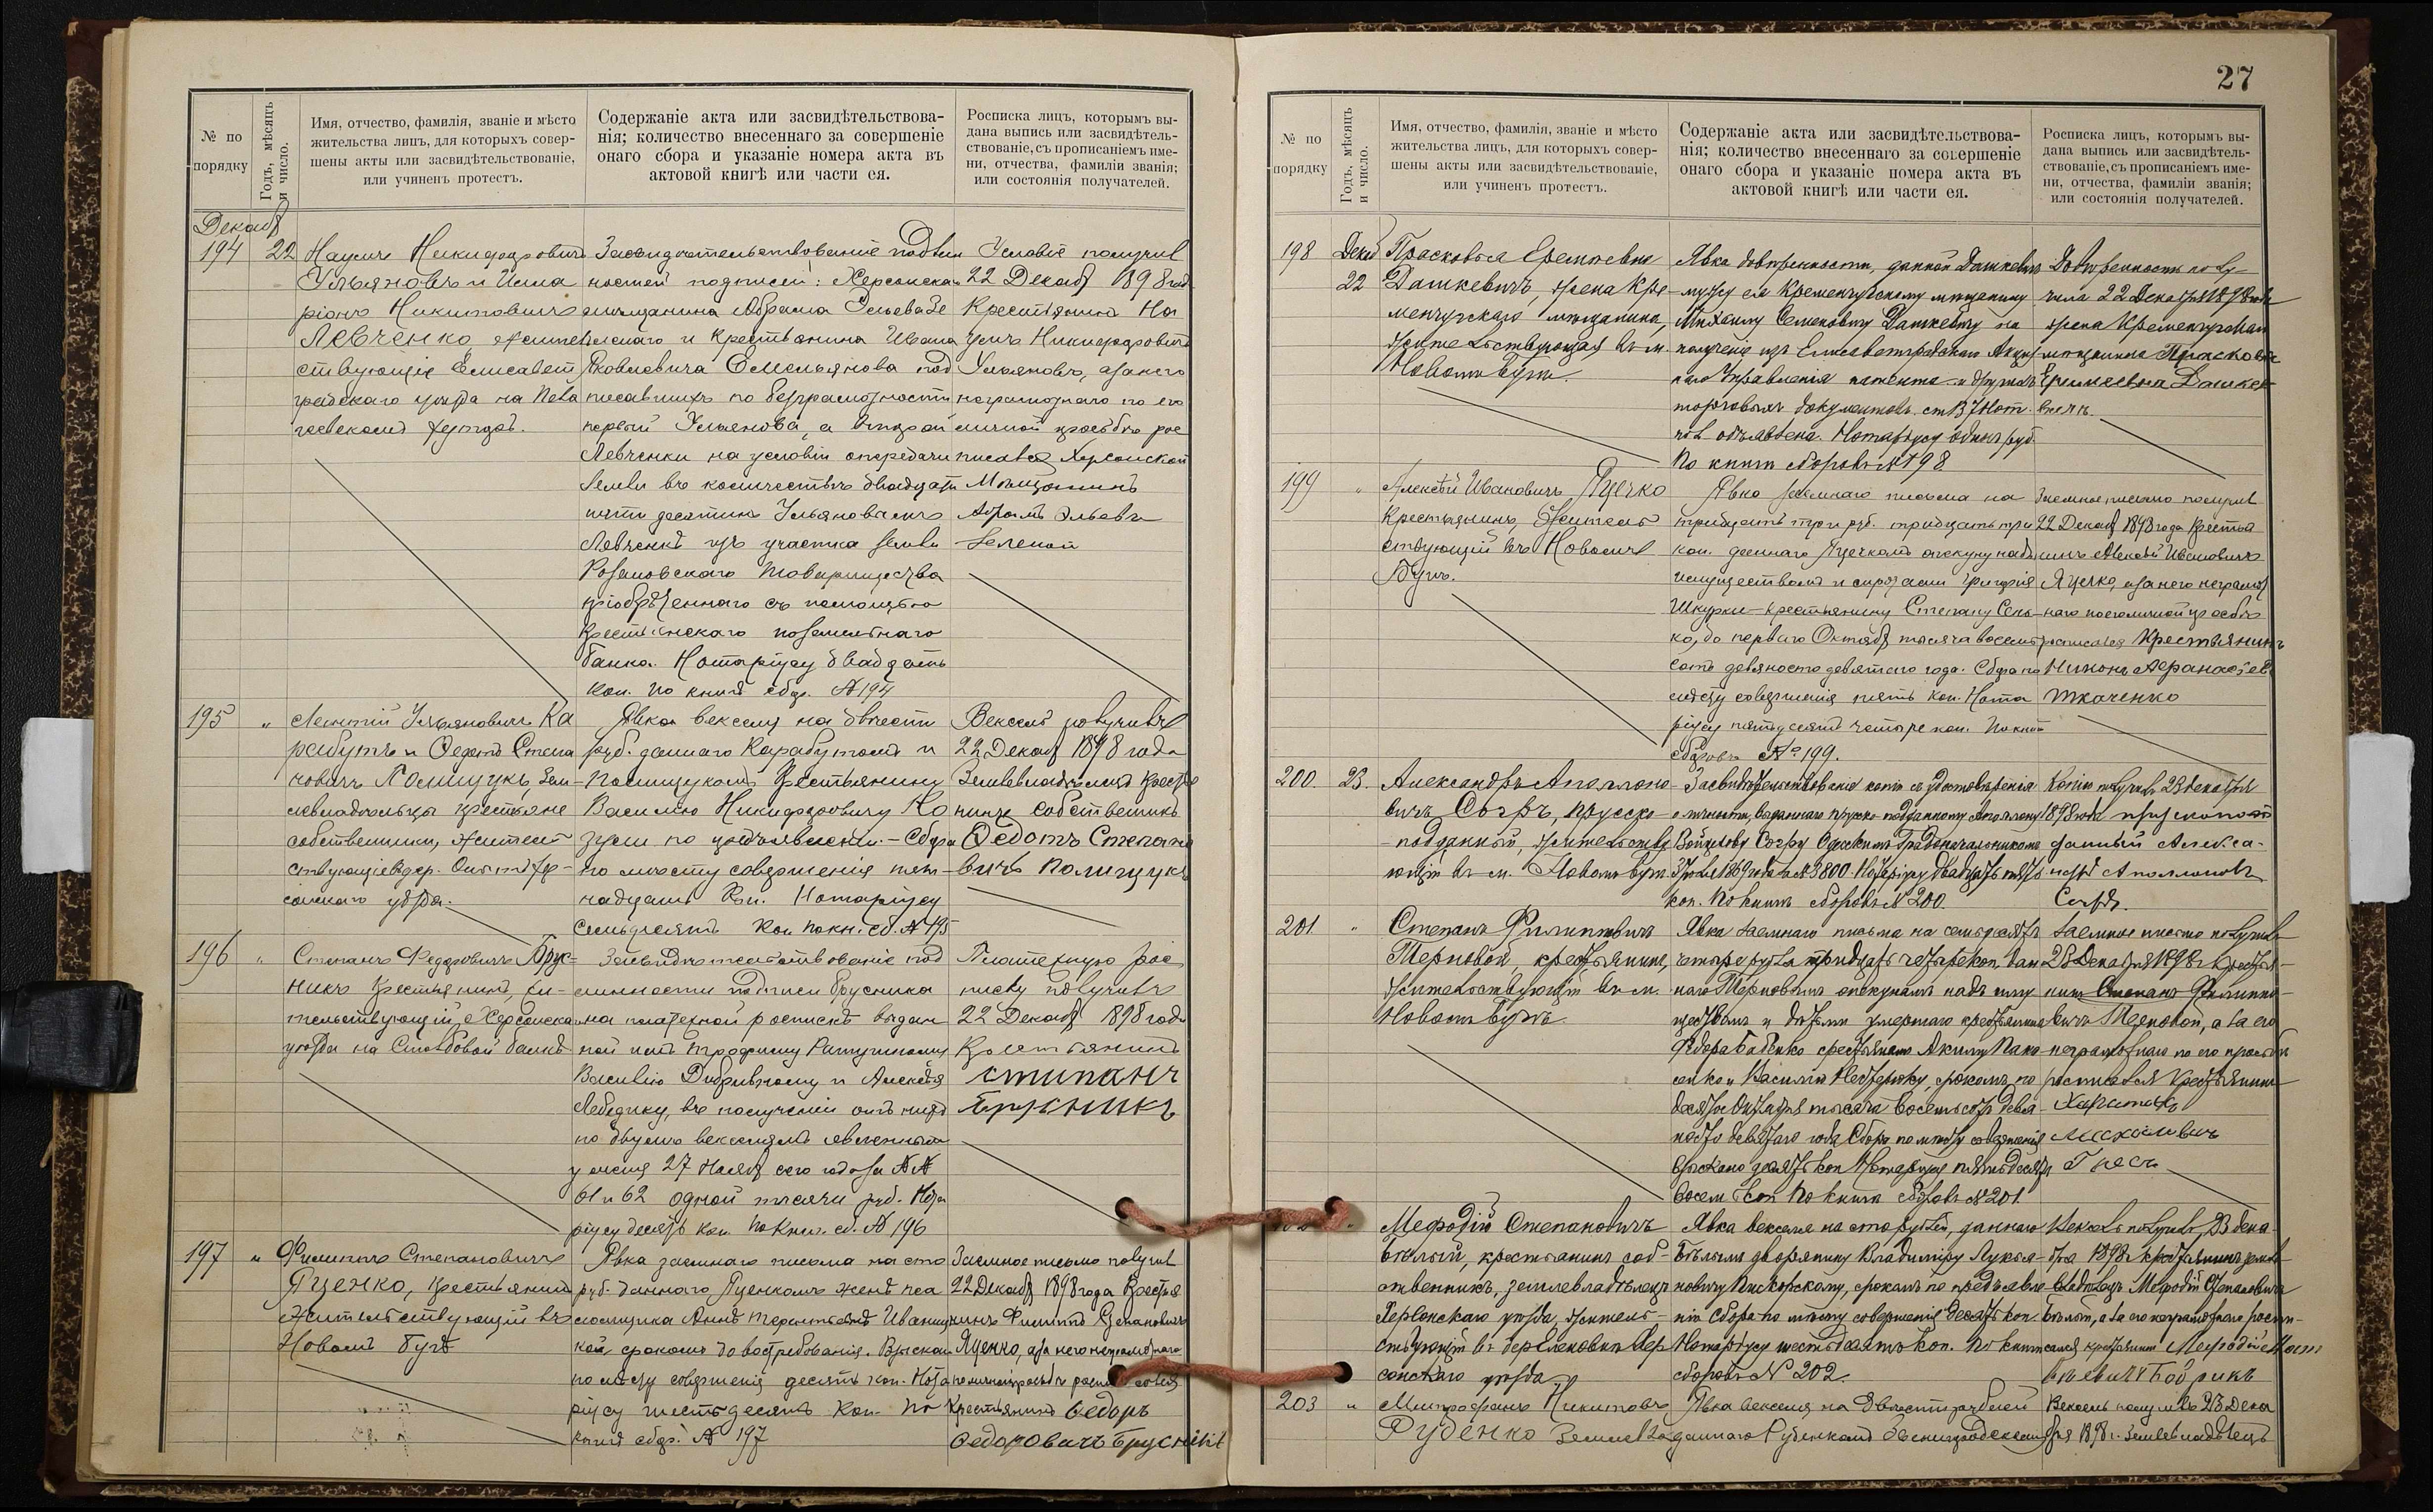 № по порядку
Годъ, мѣсяцъ и число.
Имя, отчество, фамилія, званіе и мѣсто
жительства лицъ, для которыхъ совер-
шены акты или засвидѣтельствованіе,
или учиненъ протестъ.
Содержаніе акта или засвидѣтельствова-
нія; количество внесеннаго за совершеніе
онаго сбора и указаніе номера акта въ
актовой книгѣ или части ея.
Росписка лицъ, которымъ вы-
дана выпись или засвидѣтель-
ствованіе, съ прописаніемъ име-
ни, отчества, фамиліи званія;
или состоянія получателей.
Декабр
194 22
Наумъ Никифоровичъ
Ульяновъ и Илла
ріонъ Никитовичъ
Левченко, жительст
ствующіе Елисавет
градскаго уѣзда на
хуторѣ.
Засвидѣтельствованіе подлин
ности подписи: Херсонскаго
мѣщанина Абрама Эльева Зе
ленаго и крестьянина Ивана
Яковлевича Емельянова под
писавшихъ по безграмотности
первый Ульянова, а второй
Левченки на условіи о передачи
земли въ количествѣ двадцати
пяти десятинъ Ульяновымъ
Левченкѣ изъ участка земли
Розановскаго товарищества
пріобрѣтеннаго съ помощью
Крестьянскаго поземельнаго
банка. Нотаріусу двадцать
коп. По книгѣ сбор. № 194
Условіе получилъ
22 Декабр 1898 год
Крестьянинъ На
умъ Никифоровичъ
Ульяновъ, а за него
неграмотнаго по его
личной просьбѣ рос
писался Херсонской
Мѣщанинъ
Абрамъ Эльевъ
Зеленой
195 "
Леонтій Ульяновичъ Ка
рабутъ и Федотъ Степа
новичъ Полищукъ, зем-
левладѣльцы крестьяне
собственники, жительст
ствующіе въ дер. Хер-
сонскаго уѣзда.
Явка векселя на двѣсти
руб. даннаго Карабутомъ и
Полищукомъ крестьянину
Василію Никифоровичу Ко
по предъявленіи. - Сбора
по мѣсту совершенія пят-
надцать коп. Нотаріусу
семьдесятъ коп. По кн. сб. № 195
Вексель получилъ
22 Декабр 1898 года
Землевладѣлецъ крестья
нинъ собственникъ
Федотъ Степано
вичъ Полищукъ
196 "
Степанъ Федоровичъ Брус-
никъ крестьянинъ, жи-
тельствующій Херсонскаго
уѣзда на Столбовой балкѣ
Засвидѣтельствованіе под
линности подписи Брусника
на платежной роспискѣ выдан
ной имъ Трофиму Ратушному
Василію Добривному и Алексѣю
Лебедику, въ полученіи отъ нихъ
по двумъ векселямъ явленнымъ
у меня 27 Ноябр сего года за №№
61 и 62 одной тысячи руб. Нота
ріусу десять коп. По книг. сб. № 196
Платежную рос
писку получилъ
22 Декабр 1898 года
Крестьянинъ
степанъ
Брусникъ
197 "
Филиппъ Степановичъ
Яценко, крестьянинъ
жительствующій въ
Новомъ Бугѣ
Явка заемнаго письма на сто
руб. даннаго Яценкомъ женѣ пса
ломщика Аннѣ Терентьевнѣ Иваниц
кой срокомъ до востребованія. Взыскано
по мѣсту совершенія десять коп. Нота
ріусу шестьдесятъ коп. По
книгѣ сбор. № 197
Заемное письмо получилъ
22 Декабр 1898 года Крестья
нинъ Филиппъ Степановичъ
Яценко, а за него неграмотнаго
по личной просьбѣ росписался
Крестьянинъ Федоръ
Федоровичъ Брусникъ
27
№ по порядку
Годъ, мѣсяцъ и число.
Имя, отчество, фамилія, званіе и мѣсто
жительства лицъ, для которыхъ совер-
шены акты или засвидѣтельствованіе,
или учиненъ протестъ.
Содержаніе акта или засвидѣтельствова-
нія; количество внесеннаго за совершеніе
онаго сбора и указаніе номера акта въ
актовой книгѣ или части ея.
Росписка лицъ, которымъ вы-
дана выпись или засвидѣтель-
ствованіе, съ прописаніемъ име-
ни, отчества, фамиліи званія;
или состоянія получателей.
198 Декаб 22
Прасковья Еремѣевна
Дашкевичъ, жена Кре-
менчугскаго мѣщанина,
жительствующая въ м.
Новомъ Бугѣ.
Явка довѣренности, данной Дашкевичъ
мужу ея Кременчугскому мѣщанину
Михаилу Семеновичу Дашкевичу на
полученіе изъ Елисаветградскаго Акциз
наго Управленія патента и другихъ
торговыхъ документовъ. ст. Нот.
объявлена. Нотаріусу одинъ руб.
По книгѣ сборовъ № 198
Довѣренность полу-
чила 22 Декабря 1898 года
жена Кременчугскаго
мѣщанина Прасковья
Еремѣевна Дашке
вичъ.
199 "
Алексѣй Ивановичъ Яцечко
крестьянинъ, житель
ствующій въ Новомъ
Бугѣ.
Явка заемнаго письма на
тридцать три руб. тридцать три
коп. даннаго Яцечкомъ опекуну надъ
имуществомъ и сиротами
Шкурки - крестьянину Степану Сень-
ко, до перваго Октябр тысяча восемь
сотъ девяносто девятаго года. Сбора по
мѣсту совершенія пять коп. Нота
ріусу пятьдесятъ четыре коп. По книг
сборовъ №. 199.
Заемное письмо получилъ
22 Декабр 1898 года крестья
нинъ Алексѣй Ивановичъ
Яцечко, а за него неграмот
наго по его личной просьбѣ
росписался Крестьянинъ
Никонъ Афанасьев
Ткаченко
200 23
Александръ Аполлоно-
вичъ Согръ, прусско-
подданный, жительству
ющій въ м. Новомъ Бугѣ.
Засвидѣтельствованіе копіи съ удостовѣренія
о личности, выданнаго прусско-подданному Аполлону
Согру Одесскимъ Градоначальникомъ
3 Іюля 1869 года за № 3800. Нотаріусу двадцать пять
коп. По книгѣ сборовъ № 200.
Копію получилъ 23 декабря
1898 года прусскопод
данный Алекса-
ндръ Аполлоновъ
Согръ.
201 "
Степанъ Филипповичъ
Терновой, крестьянинъ,
жительствующій въ м.
Новомъ Бугѣ.
Явка заемнаго письма на семьдесятъ
четыре рубля тридцать четыре коп. дан
наго Терновымъ опекунамъ надъ иму
ществомъ и дѣтьми умершаго крестьянина
Федора Бабенко крестьянамъ Акиму Пана
сенко и Василію Нестерюку, срокомъ по
десятое Октября тысяча восемьсотъ девя-
носто девятаго года Сбора по мѣсту совершенія
взыскано десять коп Нотаріусу пятьдесятъ
восемь коп По книгѣ сборовъ № 201.
Заемное письмо получилъ
23 Декабря 1898 г. крестья-
нинъ Степанъ Филиппо-
вичъ Терновой, а за его
неграмотнаго по его просьбѣ
росписался Крестьянинъ
Харитонъ
Гнесъ
"
Мефодій Степановичъ
Бѣлый, крестьянинъ соб-
ственникъ, землевладѣлецъ
Херсонскаго уѣзда, житель-
ствующій въ дер Еленовкѣ Хер
сонскаго уѣзда.
Явка векселя на сто рублей, даннаго
Бѣлымъ дворянину Владиміру Лукья-
новичу Пискорскому, срокомъ по предъявле
ніи Сбора по мѣсту совершенія десять коп.
Нотаріусу шестьдесятъ коп. По книгѣ
сборовъ № 202.
Вексель получилъ 23 дека-
бря 1898 г. крестьянинъ земле
владѣлецъ Мефодій Степановичъ
Бѣлый, а за его неграмотнаго роспи-
сался крестьянинъ Мефодій Мат
вѣевичъ Бобрикъ
203 "
Митрофанъ Никитовъ
Руденко Землевла
Явка векселя на двѣсти рублей
даннаго Руденкомъ
Вексель получилъ 23 Дека
бря 1898 г. Землевладѣлецъ